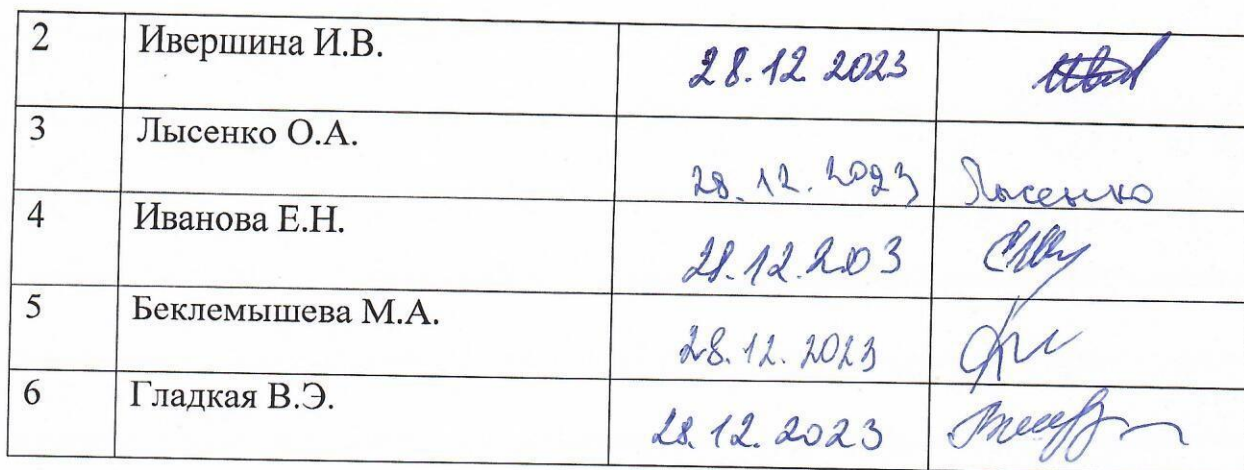 2 Ивершина И.В. 28.12 2023
3 Лысенко О.А. 28.12.2023 Лысенко
4 Иванова Е.Н. 28.12.2003
5 Беклемышева М.А. 28.12.2023
6 Гладкая В.Э. 28.12.2023